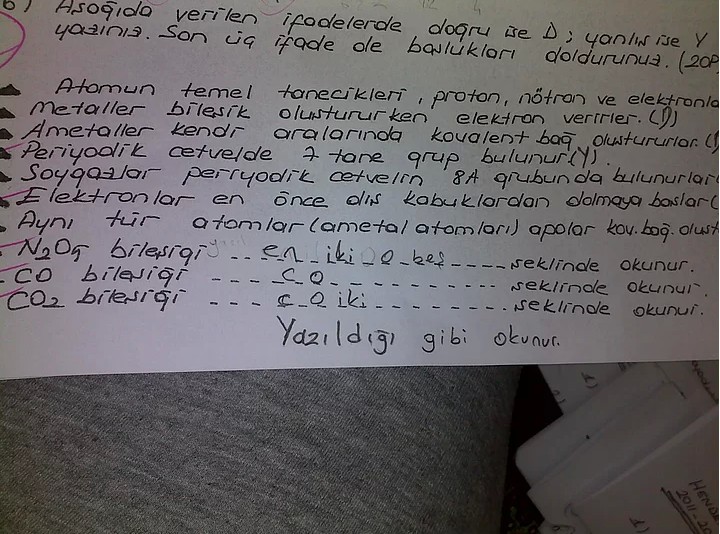 6) Asoğıda verilen ifadelerde doğru ise D; yanlıs ise Y
yazınız. Son üç ifade de boslukları doldurunuz. (20P
Atomun temel tanecikleri, proton, nötron ve elektronla
Metaller bilesik olustururken elektron verirler. (D)
Ametaller kendi aralarında kovalent bağ olustururlar. (
Periyodik cetvelde 7 tane grup bulunur (Y).
Soygazlar perıyodik cetvelin 8A grubunda bulunurlar(
Elektronlar en önce dıs kabuklardan dolmaya baslar (
Aynı tür atomlar (ametal atomları) apolar kov. bağ. olust
N2O5 bilesiği en iki O bes seklinde okunur.
CO bilesiği C O seklinde okunur.
CO2 bilesiği C O iki seklinde okunur.
Yazıldığı gibi okunur.
HEND
2011-20
1)
1)